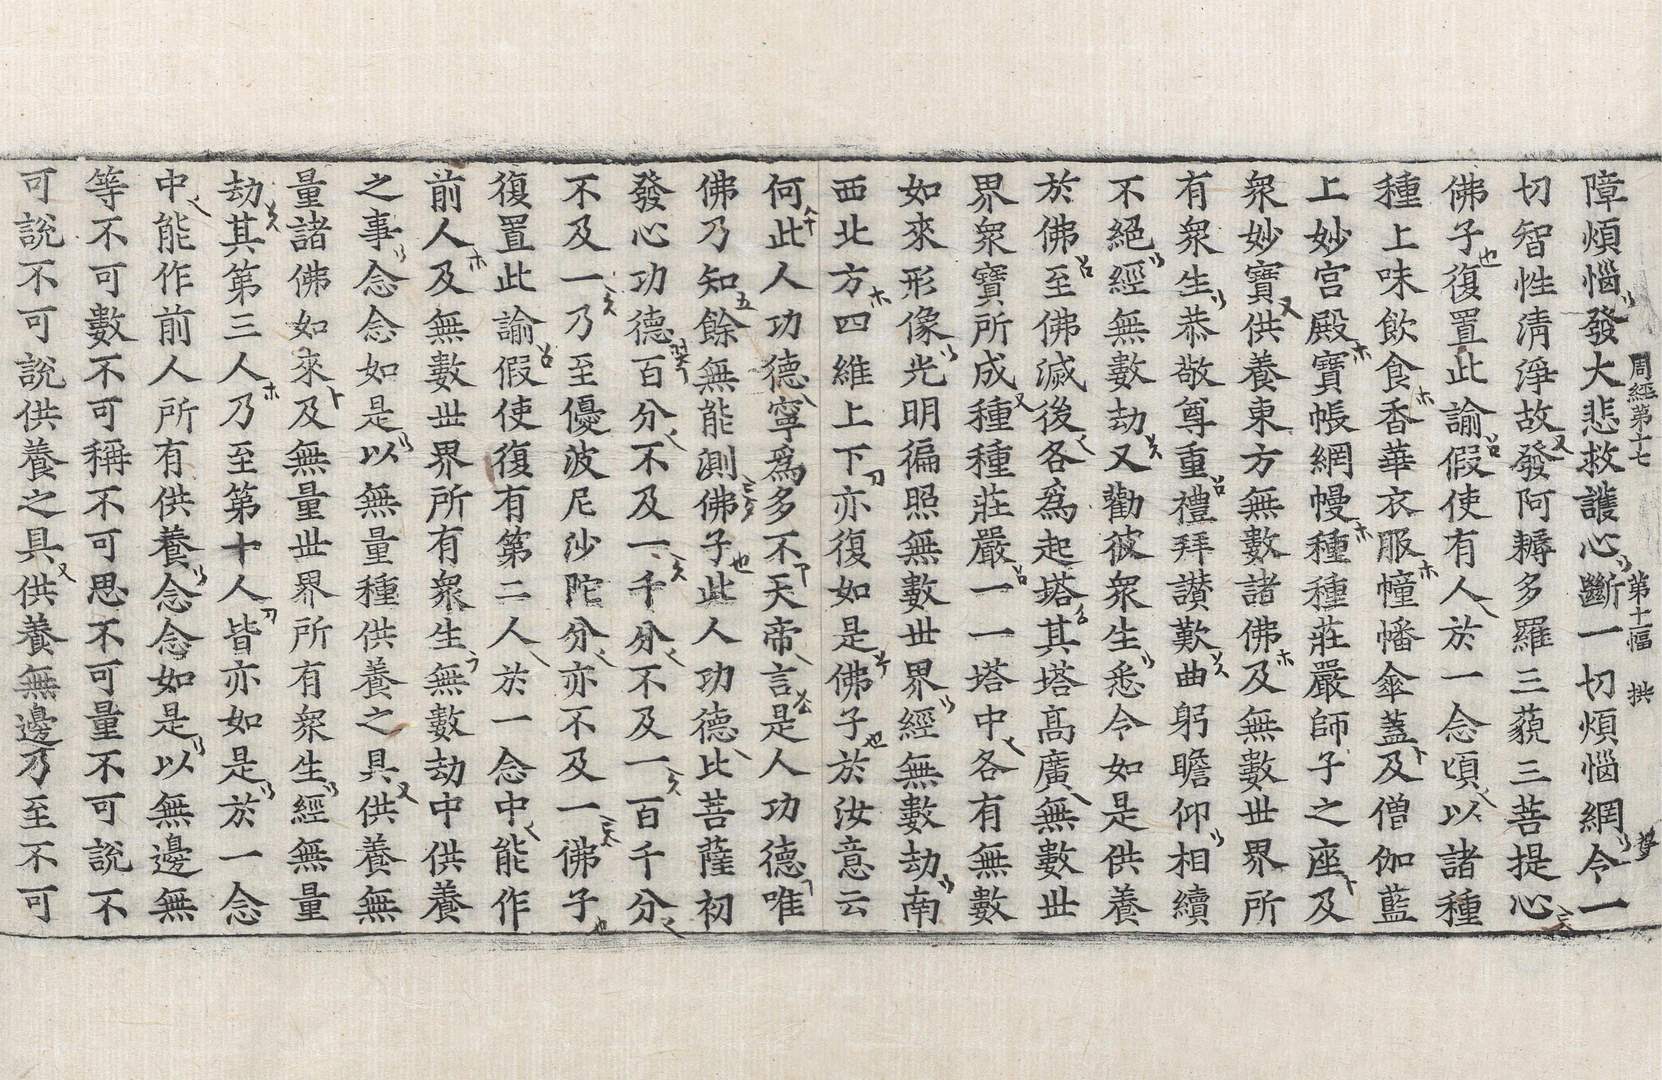 周經第十七　第十一幅　拱
障煩惱發大悲救護心斷一切煩惱網令一
切智性清淨故發阿耨多羅三藐三菩提心
佛子復置此諭假使有人於一念頃以諸種
種上味飲食香華衣服幢幡傘蓋及僧伽藍
上妙宮殿寶帳網幔種種莊嚴師子之座及
衆妙寶供養東方無數諸佛及無數世界所
有衆生恭敬尊重禮拜讃歎曲躬瞻仰相續
不絕經無數劫又勸彼衆生悉令如是供養
於佛至佛滅後各爲起塔其塔高廣無數世
界衆寶所成種種莊嚴一一塔中各有無數
如來形像光明徧照無數世界經無數劫南
西北方四維上下亦復如是佛子於汝意云
何此人功德寧爲多不天帝言是人功德唯
佛乃知餘無能測佛子此人功德比菩薩初
發心功德百分不及一千分不及一百千分
不及一乃至優波尼沙陀分亦不及一佛子
復置此諭假使復有第二人於一念中能作
前人及無數世界所有衆生無數劫中供養
之事念念如是以無量種供養之具供養無
量諸佛如來及無量世界所有衆生經無量
劫其第三人乃至第十人皆亦如是於一念
中能作前人所有供養念念如是以無邊無
等不可數不可稱不可思不可量不可說不
可說不可說供養之具供養無邊乃至不可